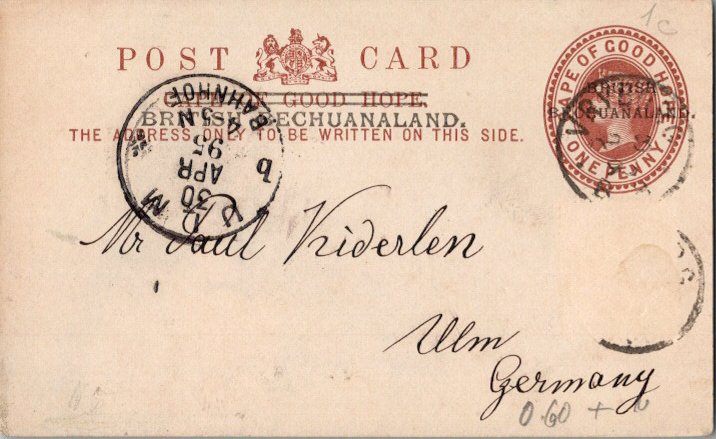 1c
POST CARD
CAPE OF GOOD HOPE.
BRITISH BECHUANALAND.
THE ADDRESS ONLY TO BE WRITTEN ON THIS SIDE.
CAPE OF GOOD HOPE.
BRITISH
BECHUANALAND.
ONE PENNY.
ULM
30
APR
95
5 N
BAHNHOF
Mr Paul Kiderlen
Ulm
Germany
0.60 +